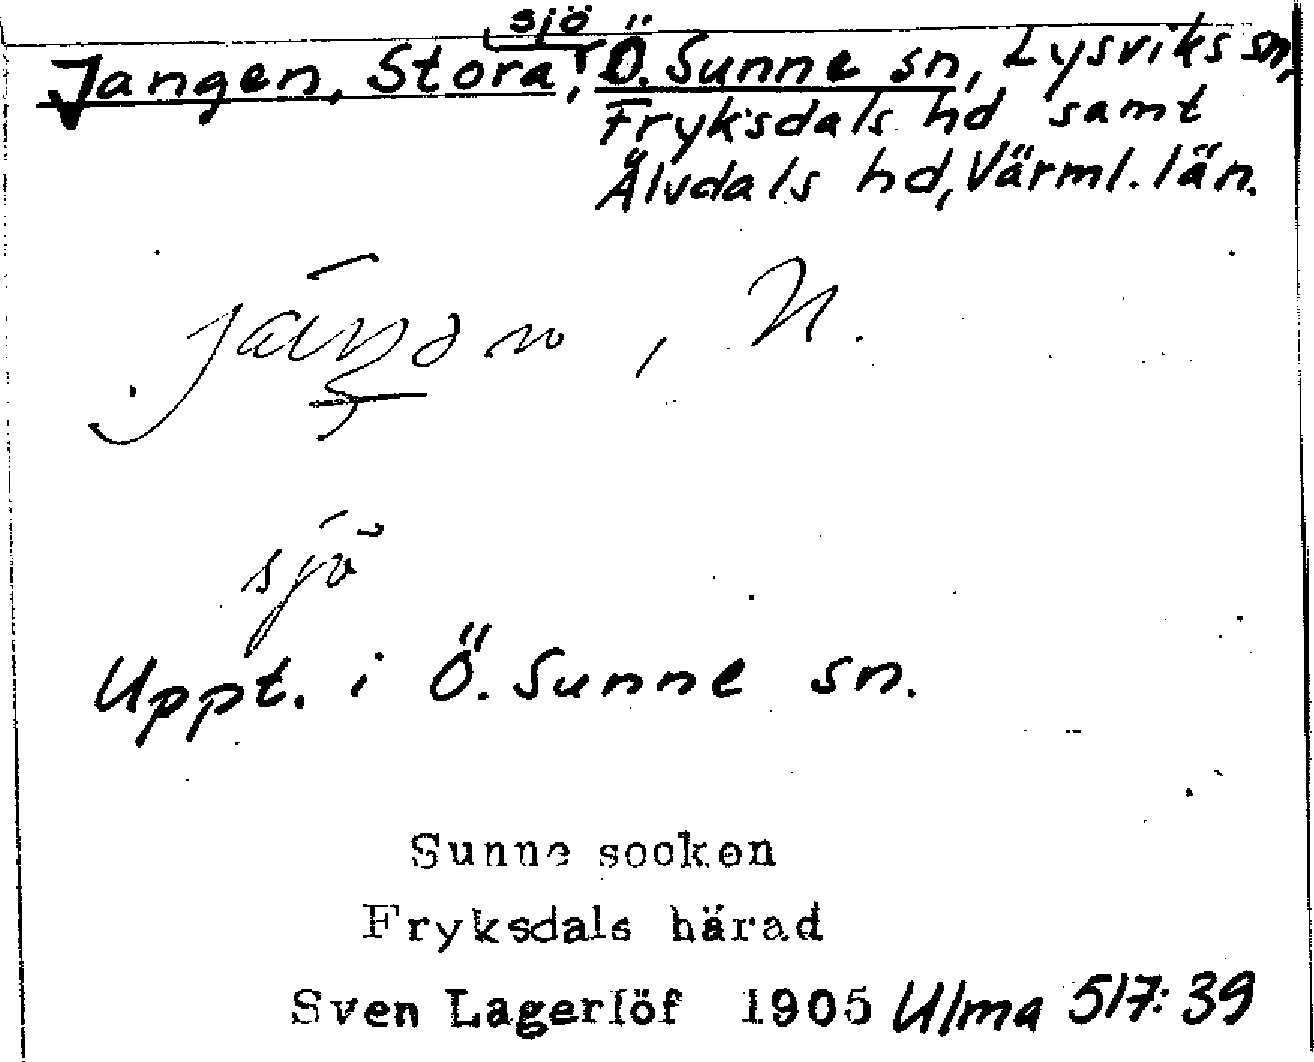 Jangen, Stora, sjö, Ö. Sunne sn, Lysviks sn,
Fryksdals hd samt
Älvdals hd, Värml. län.
, N.
sjö
Uppt. i Ö. Sunne sn.
Sunne socken
Fryksdals härad
Sven Lagerlöf 1905 Ulma 517:39